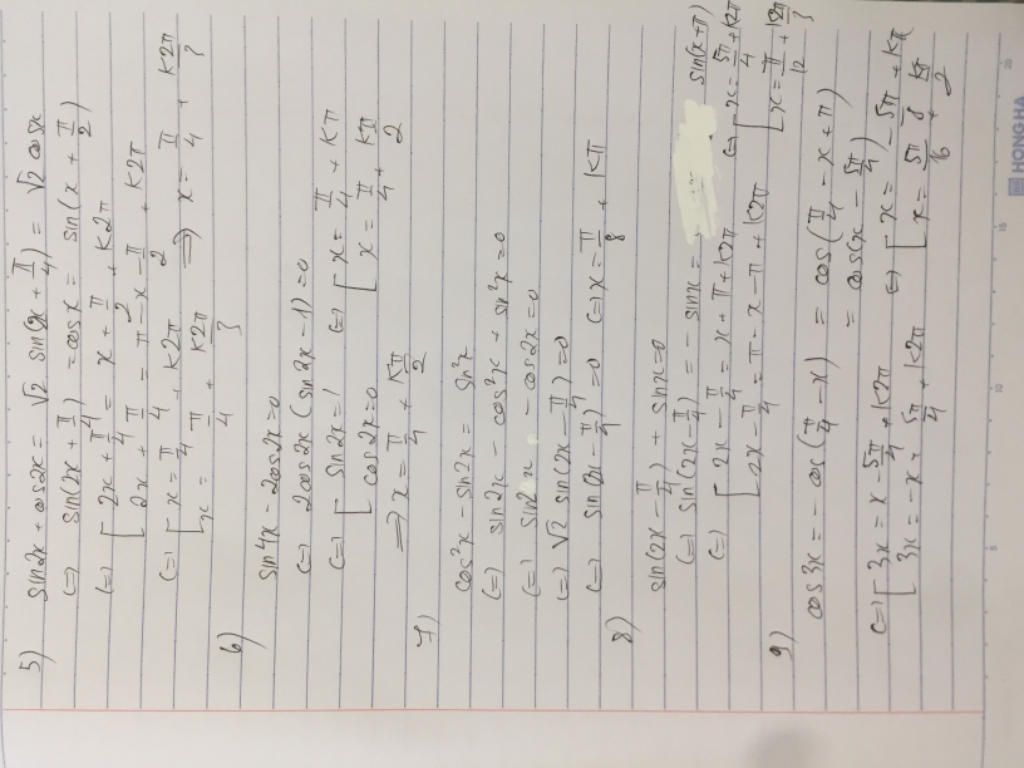 5)
sin2x + cos2x = √2 sin(2x + π/4) = √2 cosx
(=) sin(2x + π/4) = cosx = sin(x + π/2)
(=) [ 2x + π/4 = x + π/2 + k2π
2x + π/4 = π - x - π/2 + k2π
(=) [ x = π/4 + k2π
x = π/4 + k2π/3 => x = π/4 + k2π/3
6)
sin4x - 2cos2x = 0
(=) 2cos2x (sin2x - 1) = 0
(=) [ sin2x = 1 (=) [ x = π/4 + kπ
cos2x = 0 x = π/4 + kπ/2
=> x = π/4 + kπ/2
7)
cos²x - sin2x = sin²x
(=) sin2x - cos²x + sin²x = 0
(=) sin2x - cos2x = 0
(=) √2 sin(2x - π/4) = 0
(=) sin(2x - π/4) = 0 (=) x = π/8 + kπ
8)
sin(2x - π/4) + sinx = 0
(=) sin(2x - π/4) = - sinx = sin(x + π)
(=) [ 2x - π/4 = x + π + k2π (=) [ x = 5π/4 + k2π
2x - π/4 = π - x - π + k2π x = π/12 + k2π/3
9)
cos3x = - cos(π/4 - x) = cos(π/4 - x + π)
= cos(x - 5π/4)
(=) [ 3x = x - 5π/4 + k2π (=) [ x = - 5π/8 + kπ
3x = -x + 5π/4 + k2π x = 5π/16 + kπ/2
HONG HA
5
10
15
20